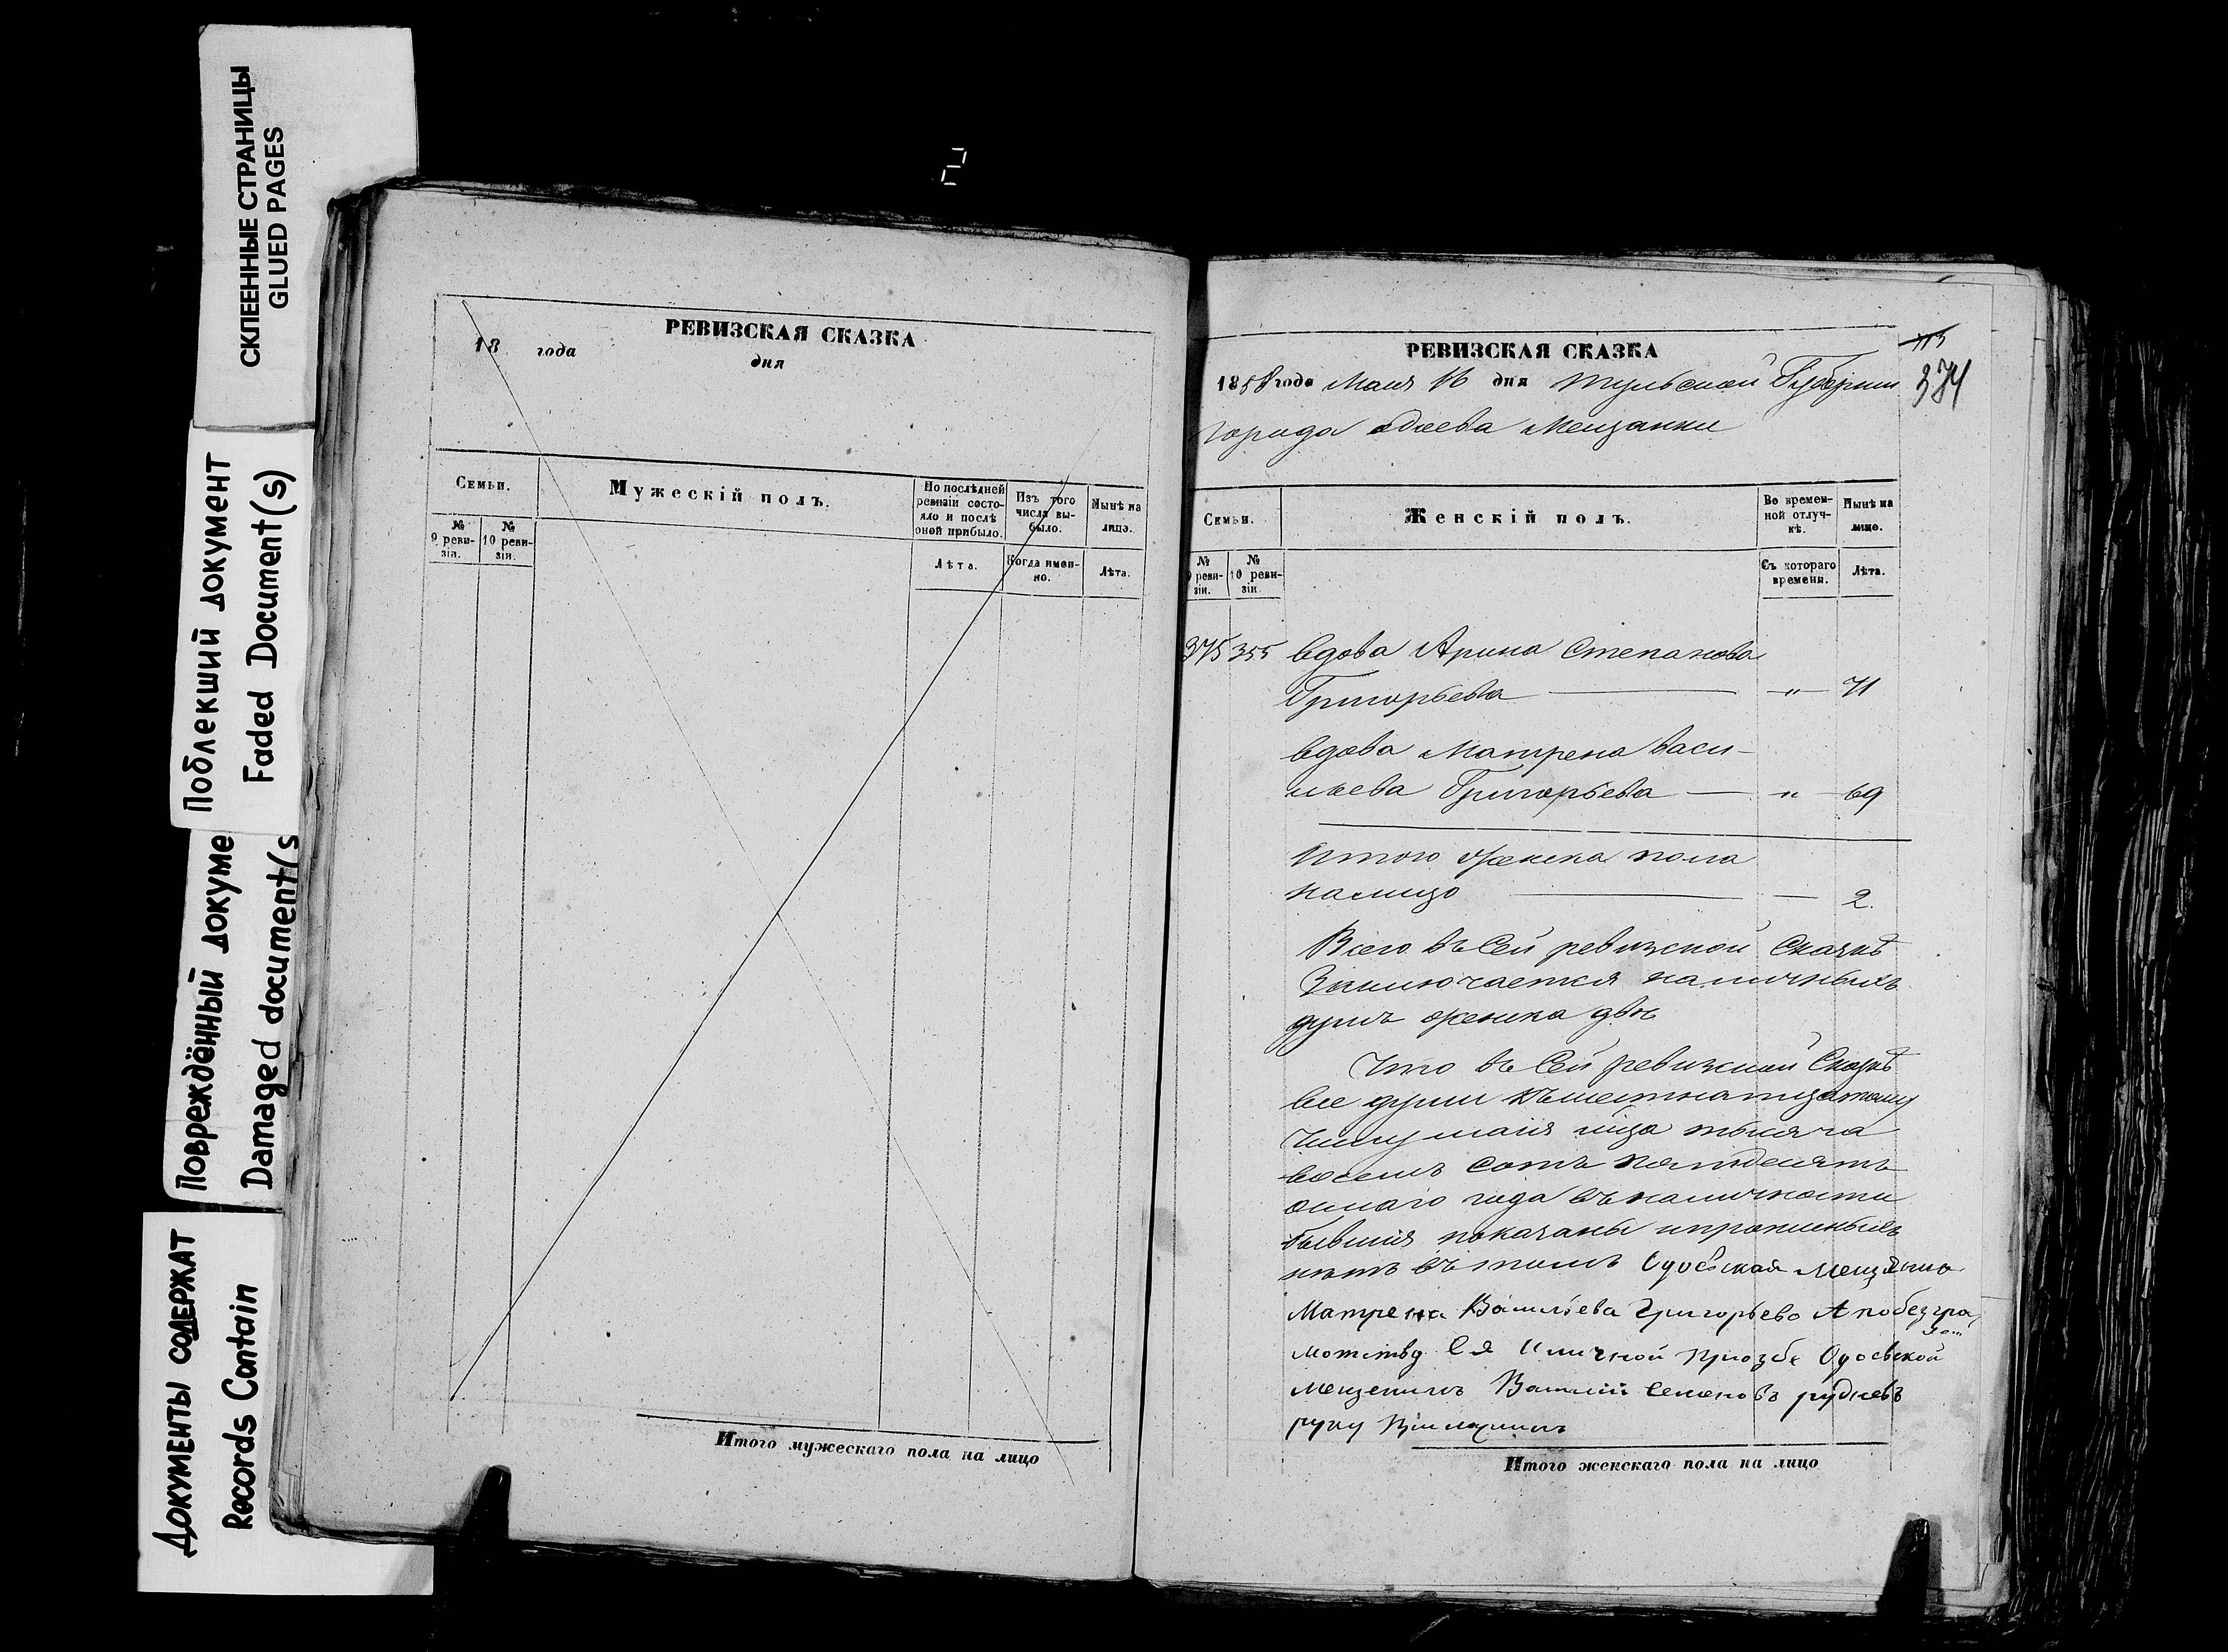 СКЛЕЕННЫЕ СТРАНИЦЫ
GLUED PAGES
Поблекший документ
Faded Document(s)
Повреждённый докуме
Damaged document(s
Документы содержат
Records Contain
2
РЕВИЗСКАЯ СКАЗКА
18 года дня
Семьи.
Мужескій полъ.
По послѣдней ревизіи состояло и послѣ оной прибыло.
Изъ того числа выбыло.
Нынѣ на лицо.
№ 9 ревизіи.
№ 10 ревизіи.
Лѣта.
Когда именно.
Лѣта.
Итого мужескаго пола на лицо
374
РЕВИЗСКАЯ СКАЗКА
1858 года Маія 16 дня Тульской Губерніи
города Одоева Мещанки
Семьи.
Женскій полъ.
Во временной отлучкѣ.
Нынѣ на лицо.
№ 9 ревизіи.
№ 10 ревизіи.
Съ котораго времени.
Лѣта.
375 355 вдова Арина Степанова
Григорьева — " — 71
вдова Матрена Васи-
льева Григорьева — " — 69
Итого женска пола
налицо — — 2.
Всего въ Сей ревизской Сказкѣ
Заключается наличныхъ
душъ женска двѣ
Что въ Сей ревизской Сказкѣ
все души къ шестнатцатому
числу маія тысяча
восемь сотъ пятдесятъ
осмаго года въ наличности
бывшія показаны и прописныхъ
нетъ въ томъ Одоевская Мещанка
Матрена Васильева Григорьева А по безгра
мотству Ея И личной прозбе Одоевской
мещенинъ Василий Семеновъ рудневъ
руку Приложилъ
Итого женскаго пола на лицо